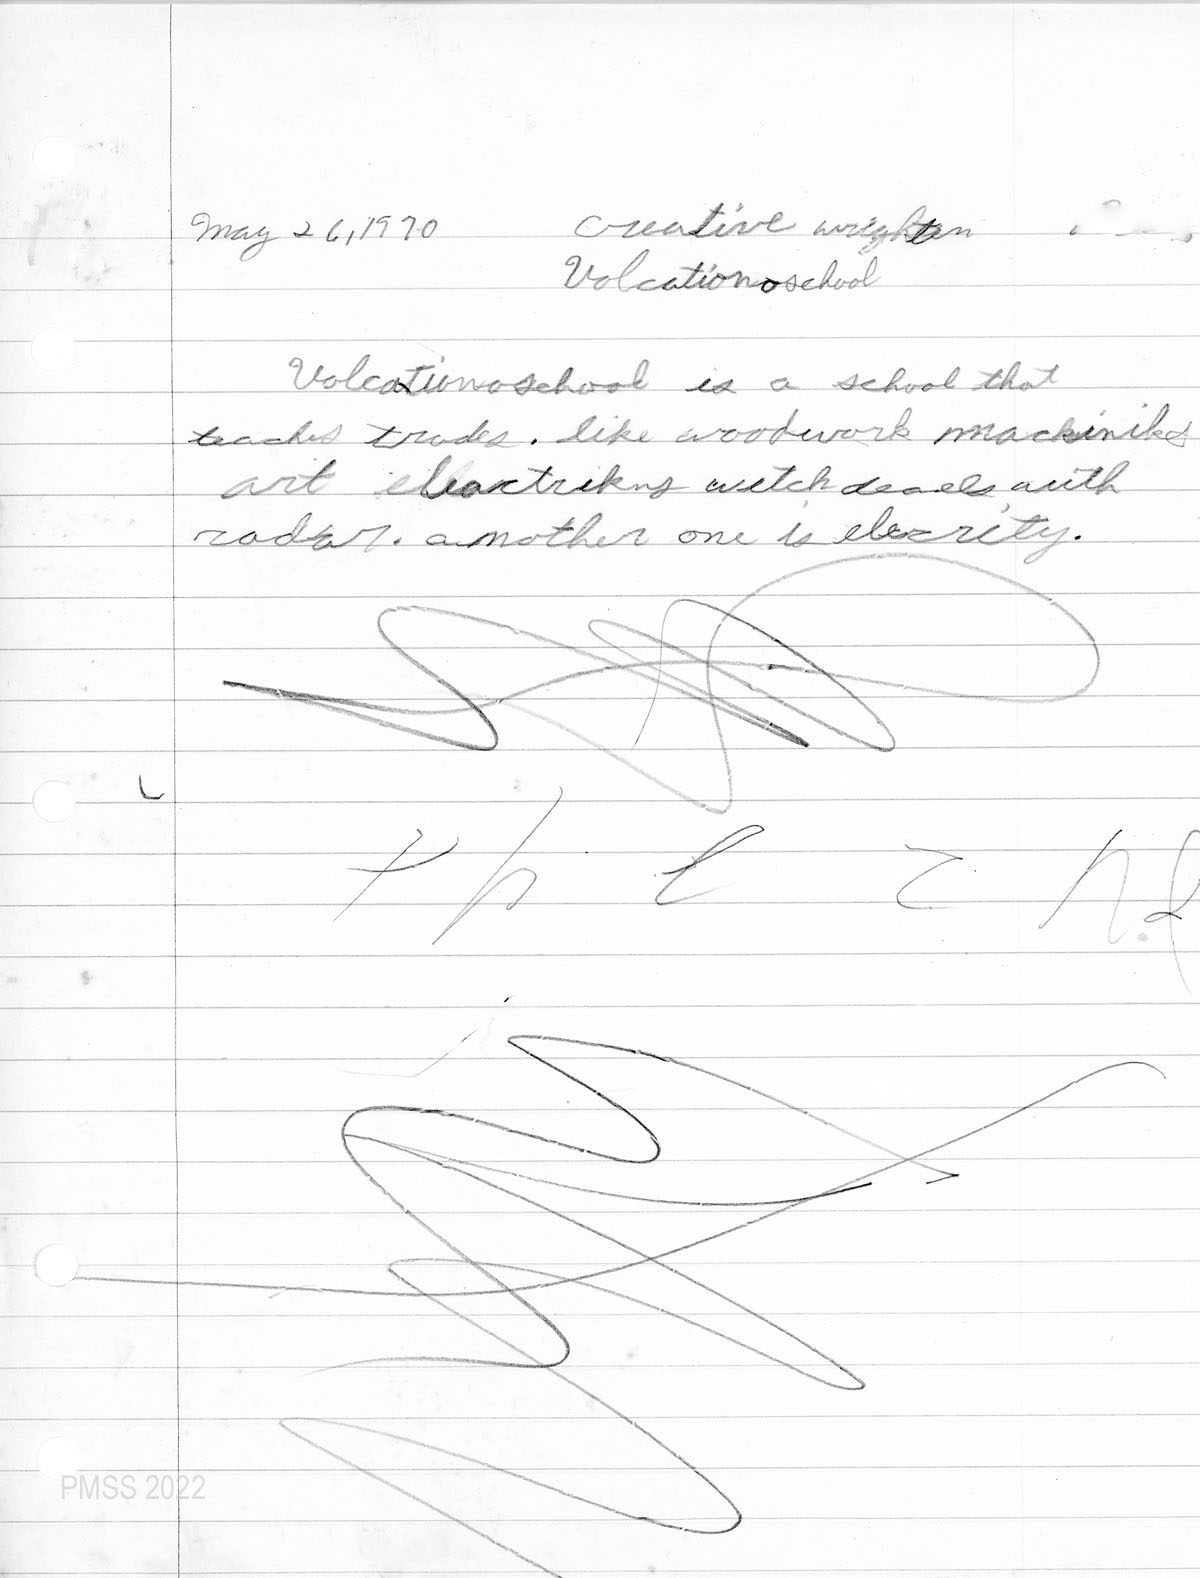 May 26, 1970 creative wrighten
Volcationoschool
Volcationoschool is a school that
teaches trades. like woodwork mackiniks
art eleactrikns witch deaels with
radar. another one is elecrity.
t h e e n d
PMSS 2022